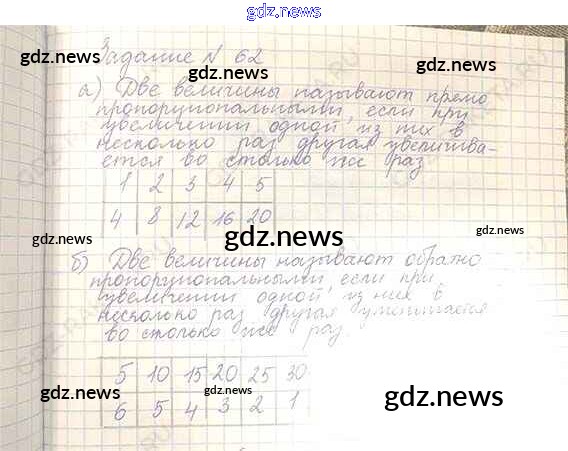 gdz.news
Задание № 62
gdz.news
gdz.news
а) Две величины называют прямо
пропорциональными, если при
увеличении одной из них в
несколько раз другая увеличива-
ется во столько же раз
gdz.news
1 2 3 4 5
4 8 12 16 20
gdz.news
gdz.news
gdz.news
б) Две величины называют обратно
пропорциональными, если при
увеличении одной, из них в
несколько раз другая уменьшается
во столько же раз.
5 10 15 20 25 30
6 5 4 3 2 1
gdz.news
gdz.news
gdz.news